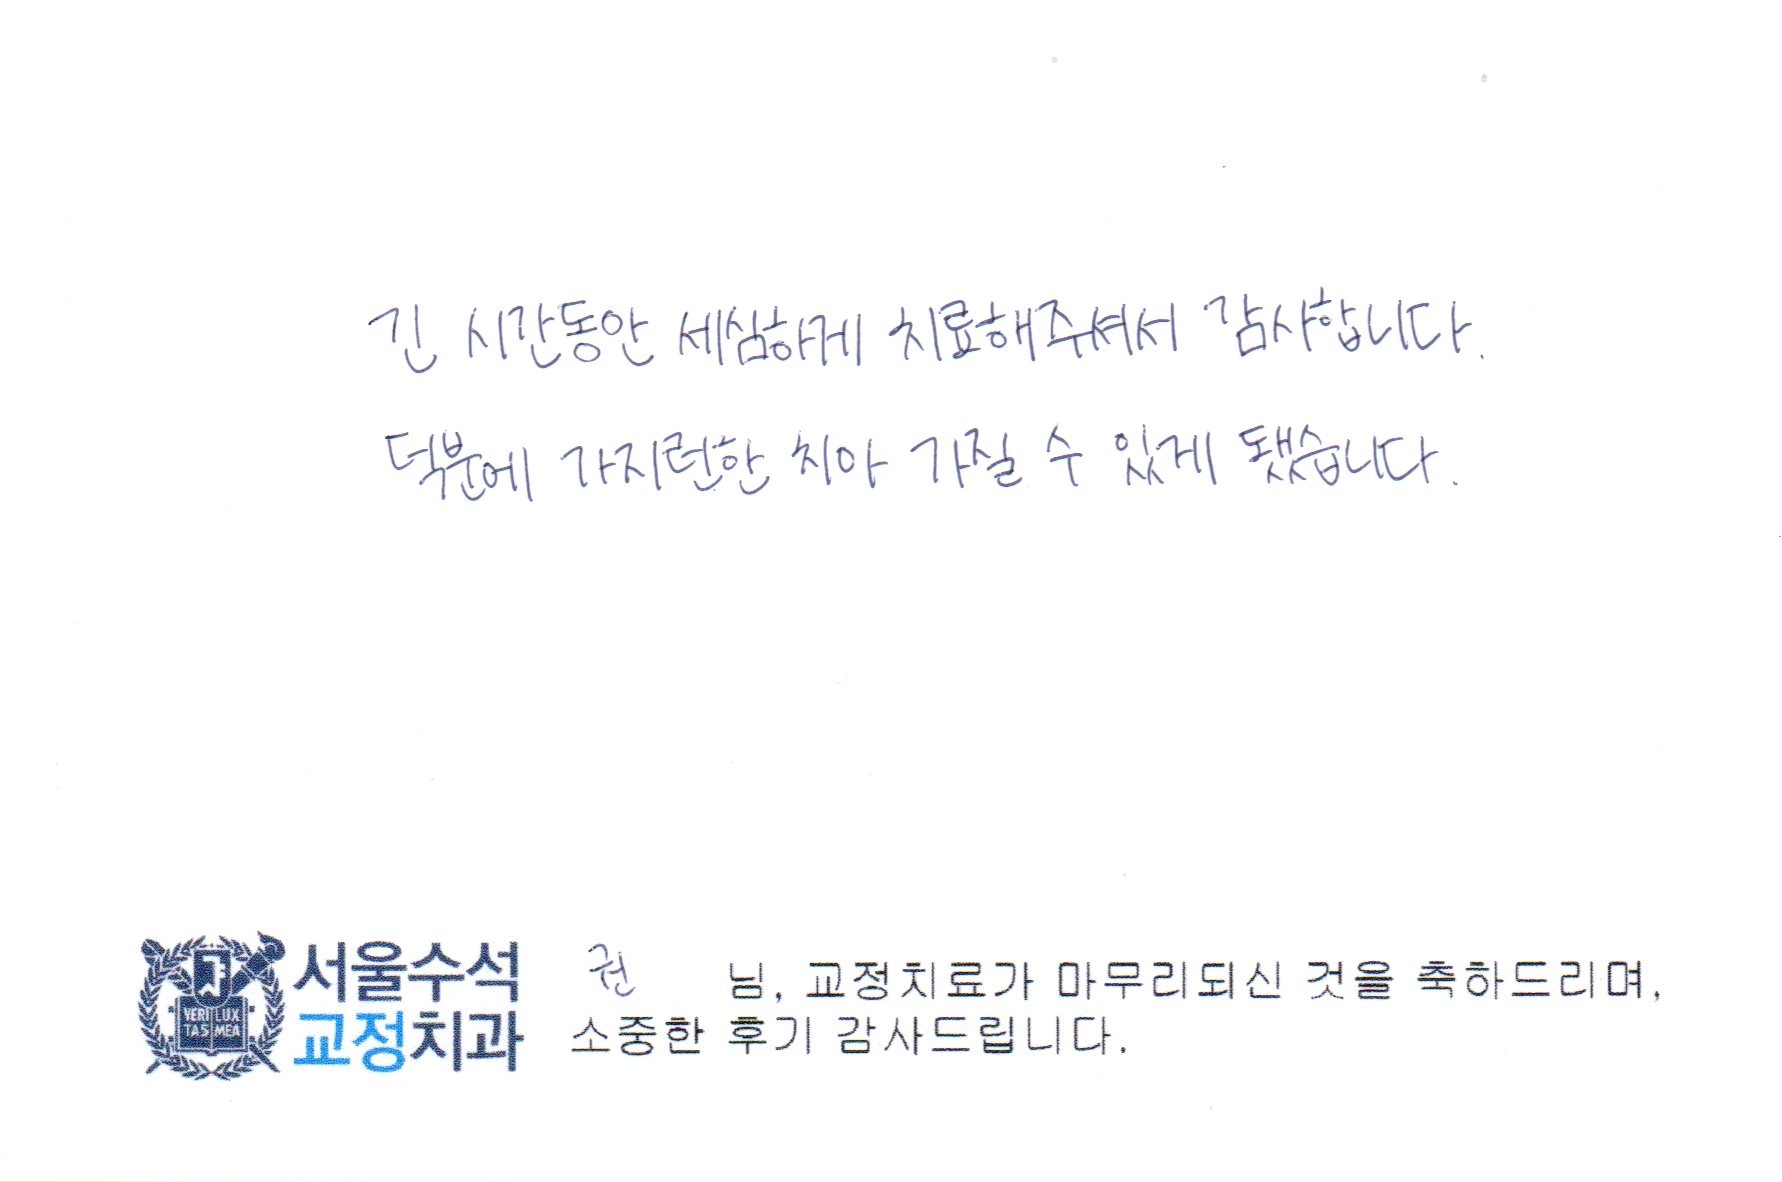 긴 시간동안 세심하게 치료해주셔서 감사합니다.
덕분에 가지런한 치아 가질 수 있게 됐습니다.
VERI LUX
TAS MEA
서울수석
교정치과
권 님, 교정치료가 마무리되신 것을 축하드리며,
소중한 후기 감사드립니다.